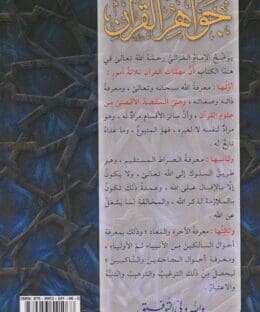 جواهر القرآن
يوضح الإمام الغزالي رحمه الله تعالى في
هذا الكتاب أن مهمات القرآن ثلاثة أمور :
أولها : معرفة الله سبحانه وتعالى ، ومعرفة
ذاته وصفاته ، وهي المقصد الأقصى من
علوم القرآن ، وأن سائر الأقسام مراد له وهو
مراد لنفسه لا لغيره ، فهو المتبوع ، وما عداه
تابع له .
وثانيها : معرفة الصراط المستقيم ، وهو
طريق السلوك إلى الله تعالى ، ولا يكون
إلا بالإقبال على الله ، وعمدة ذلك تكون
بالملازمة لذكر الله ، والمخالفة لما يشغل
عن الله .
وثالثها : معرفة الآخرة والمعاد ؛ وذلك بمعرفة
أحوال السالكين من الأنبياء ثم الأولياء ،
ومعرفة أحوال الجاحدين والناكبين ؛
ليحصل من ذلك الترغيب والترهيب والتنبُّه
والاعتبار .
والله ولي التوفيق